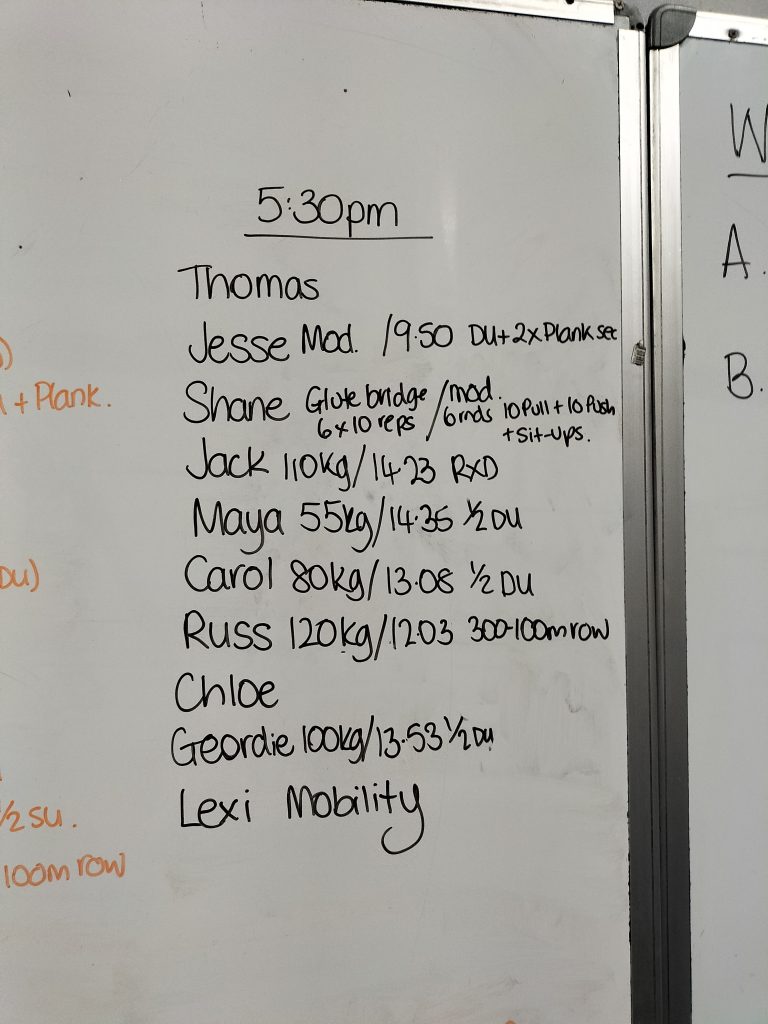 5:30pm
Thomas
Jesse Mod. /9.50 DU+2xPlank set
Shane Glute bridge /mod. 10 Pull + 10 Push
6x10 reps 6rnds + Sit-ups.
Jack 110kg/14.23 RXD
Maya 55kg/14.35 ½ DU
Carol 80kg/13.08 ½ DU
Russ 120kg/12.03 300-100m row
Chloe
Geordie 100kg/13.53 ½ DU
Lexi Mobility
+ Plank.
DU)
½ SU.
100m row
W
A.
B.